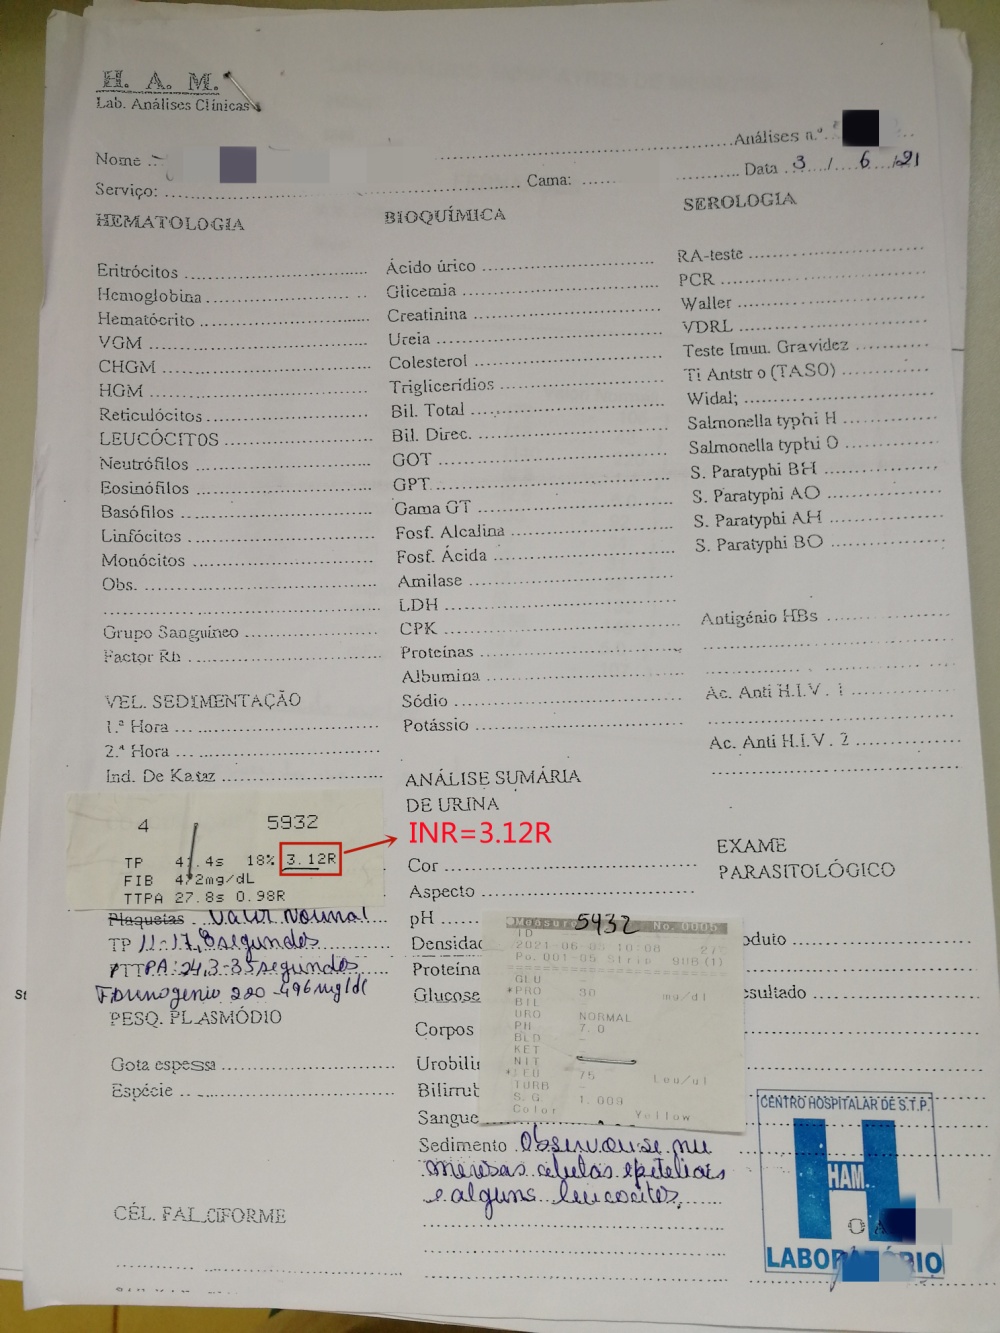 H. A. M.
Lab. Análises Clínicas
Análises n.º
Nome
Data 3 / 6 /21
Serviço:
Cama:
HEMATOLOGIA
Eritrócitos
Hemoglobina
Hematócrito
VGM
CHGM
HGM
Reticulócitos
LEUCÓCITOS
Neutrófilos
Eosinófilos
Basófilos
Linfócitos
Monócitos
Obs.
Grupo Sanguíneo
Factor Rh
VEL. SEDIMENTAÇÃO
1.ª Hora
2.ª Hora
Ind. De Kataz
4 5932
TP 41.4s 18% 3.12R
FIB 472mg/dL
TTPA 27.8s 0.98R
INR=3.12R
Plaquetas Valur Normal
TP 11-17,8 segundos
TTPA: 24,3-35 segundos
200-496 mg/dl
PESQ. PLASMÓDIO
Gota espessa
Espécie
CÉL. FALCIFORME
BIOQUÍMICA
Ácido úrico
Glicemia
Creatinina
Ureia
Colesterol
Trigliceridios
Bil. Total
Bil. Direc.
GOT
GPT
Gama GT
Fosf. Alcalina
Fosf. Ácida
Amilase
LDH
CPK
Proteínas
Albumina
Sódio
Potássio
ANÁLISE SUMÁRIA
DE URINA
Cor
Aspecto
pH
Densidad
Proteína
Glucose
Corpos
Urobilin
Bilirrub
Sangue
Sedimento Observou-se nu
merosas celulas epiteliais
e alguns leucocitos
5932
Measur No.0005
ID
2021-06-03 10:08
Po.001-05 Strip 9UB(1)
GLU -
*PRO 30 mg/dl
BIL -
URO NORMAL
PH 7.0
BLD -
KET
NIT
*LEU 75 Leu/ul
TURB -
S.G 1.009
Color Yellow
SEROLOGIA
RA-teste
PCR
Waller
VDRL
Teste Imun. Gravidez
Ti Antstro (TASO)
Widal;
Salmonella typhi H
Salmonella typhi O
S. Paratyphi BH
S. Paratyphi AO
S. Paratyphi AH
S. Paratyphi BO
Antigénio HBs
Ac. Anti H.I.V. 1
Ac. Anti H.I.V. 2
EXAME
PARASITOLÓGICO
oduto
esultado
CENTRO HOSPITALAR DE S.T.P.
HAM.
O A
LABORATÓRIO